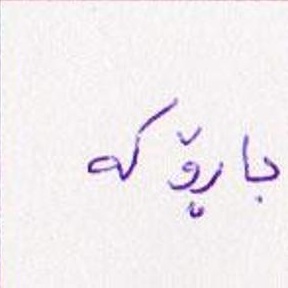 جاڕۆکە